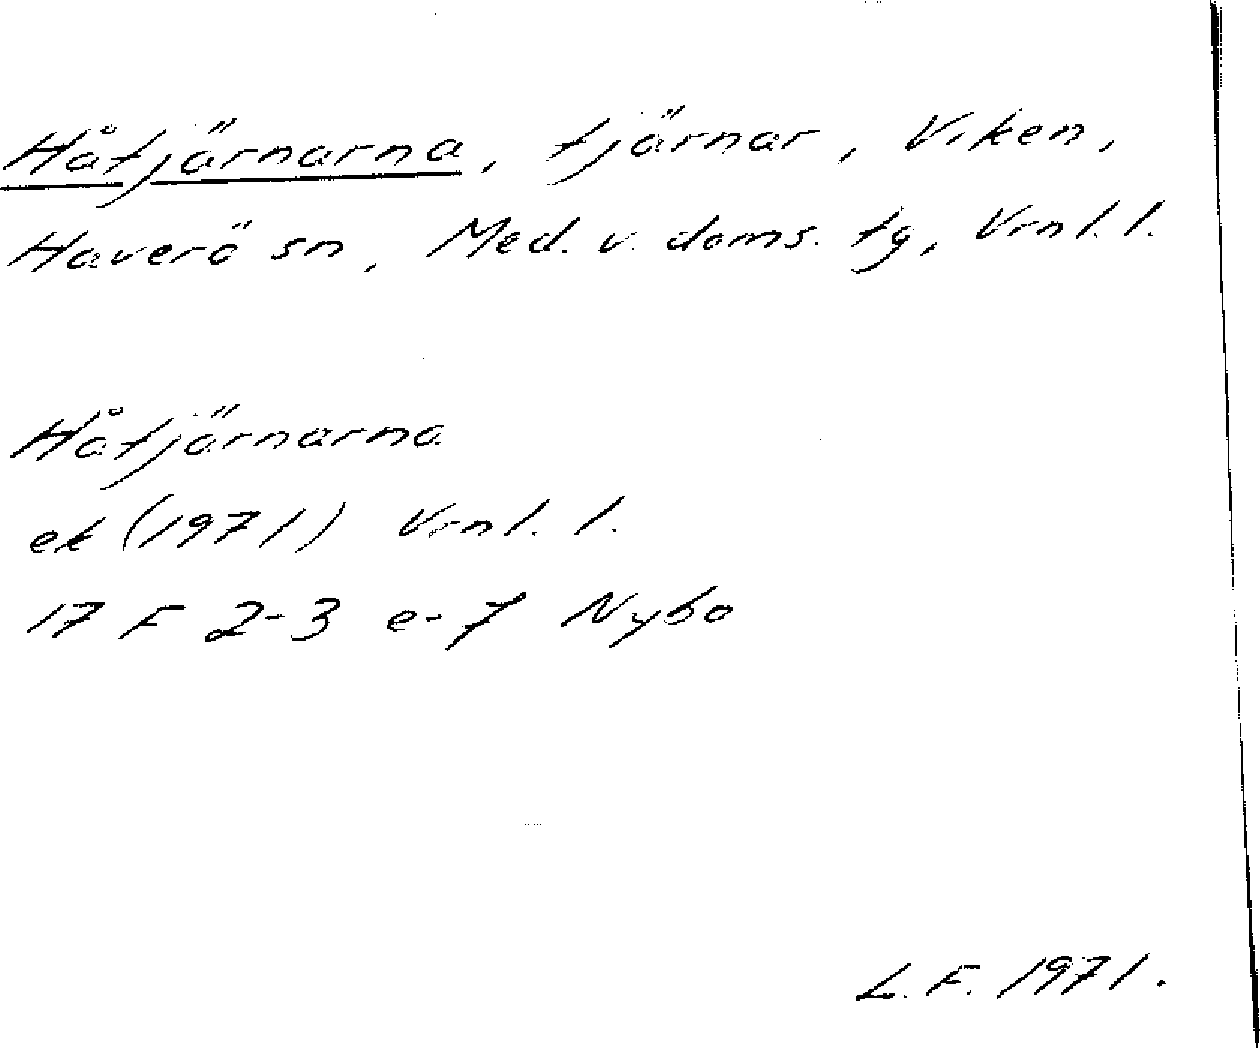 Håtjärnarna, tjärnar, Viken,
Haverö sn, Med. v. doms. tg, Vrnl. l.
Håtjärnarna
ek (1971) Vrnl. l.
17 F 2-3 e-f Nybo
L. F. 1971.